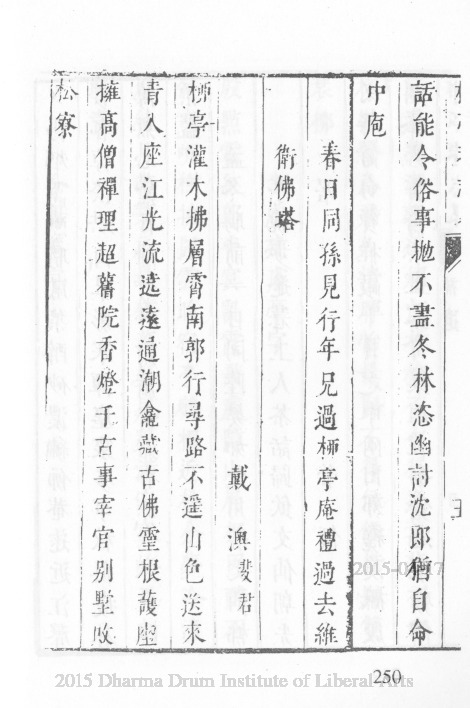 話能令俗事拋不盡冬林恣幽討沈郎猶自命
中庖
春日同孫見行年兄過栁亭庵禮過去維
衛佛塔
戴澳斐君
栁亭灌木拂層霄南郭行尋路不遥山色送來
青入座江光流遶遠通潮龕藏古佛靈根護座
擁高僧禪理超舊院香燈千古事宰官别墅敗
松寮
2015-0 7
250
2015 Dharma Drum Institute of Liberal Arts